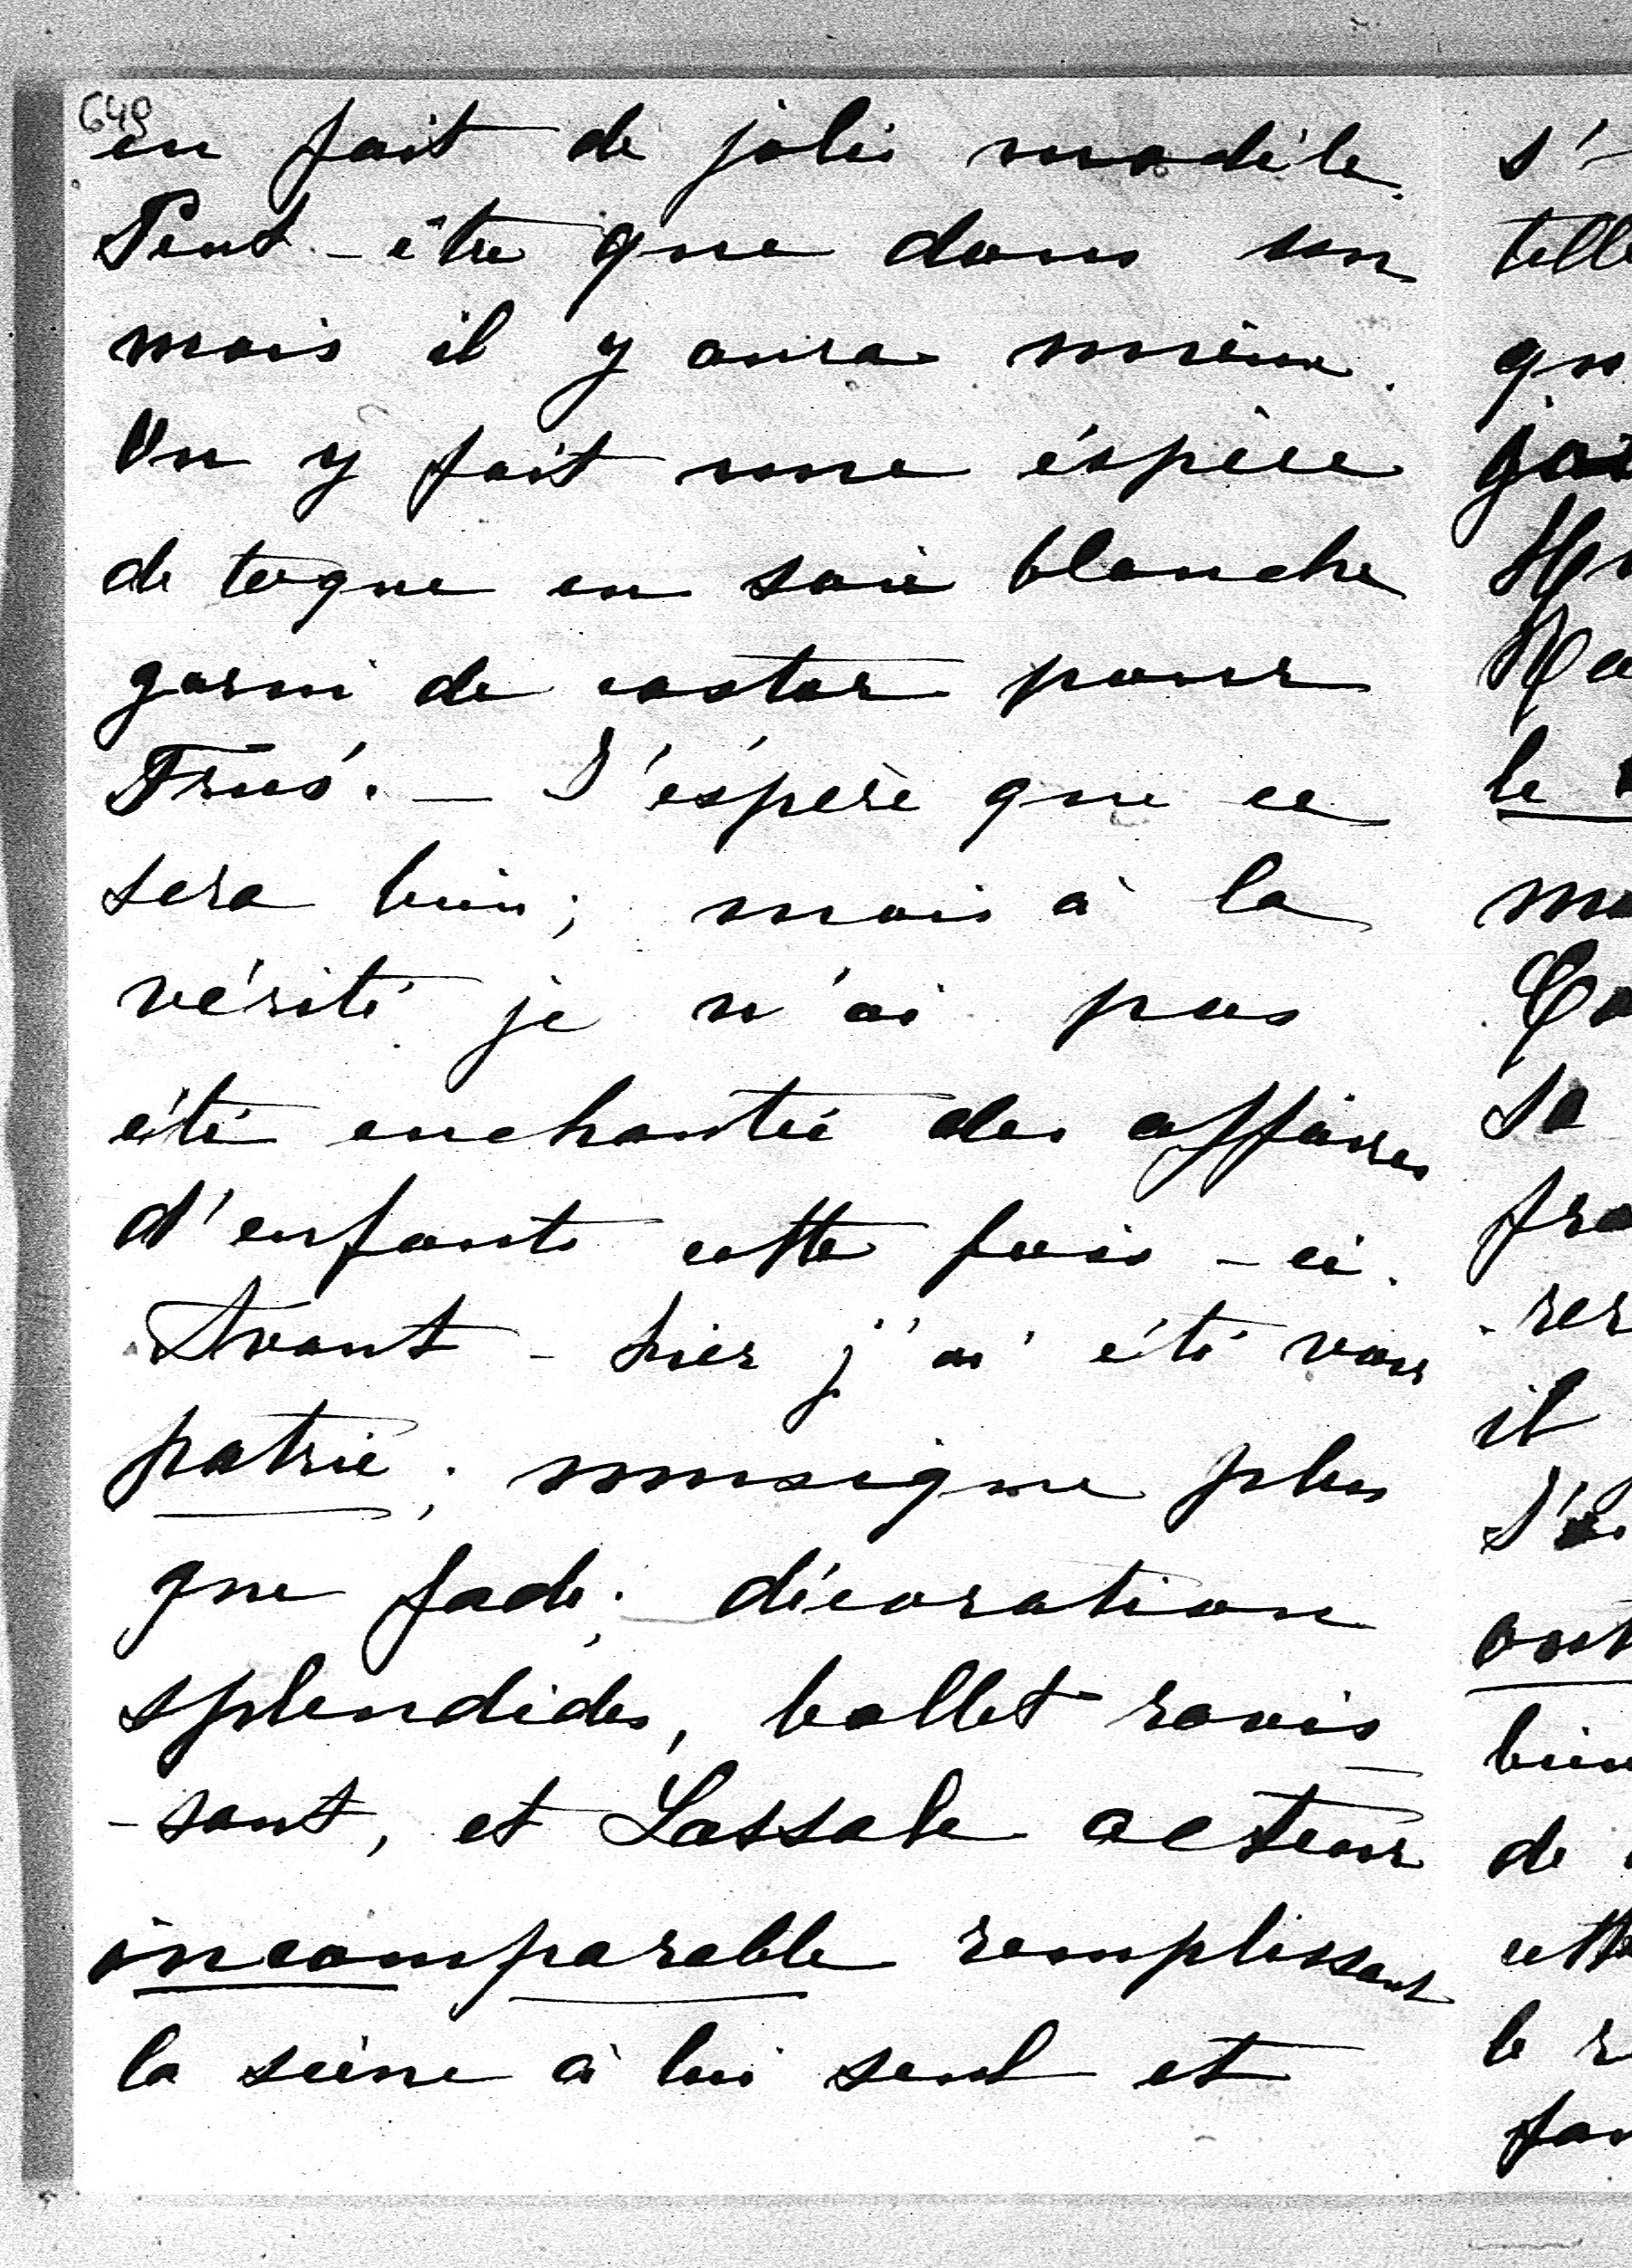 649
en fait de jolis modèle.
Peut-être que dans un
mois il y aura mieux.
On y fait une éspèce
de toque en soie blanche
garni de castor pour
J'éspère que ce
sera bien; mais à la
vérité je n'ai pas
été enchantée des affaires
d'enfants cette fois-ci.
Avant-hier j'ai été voir
patrie; musique plus
que fade; décoration
splendides, ballet ravis
-sant, et Lassale acteur
incomparable remplissant
la scène à lui seul et
s'
telle
qu
le
Sa
fra
-rer
il
de
cette
le r